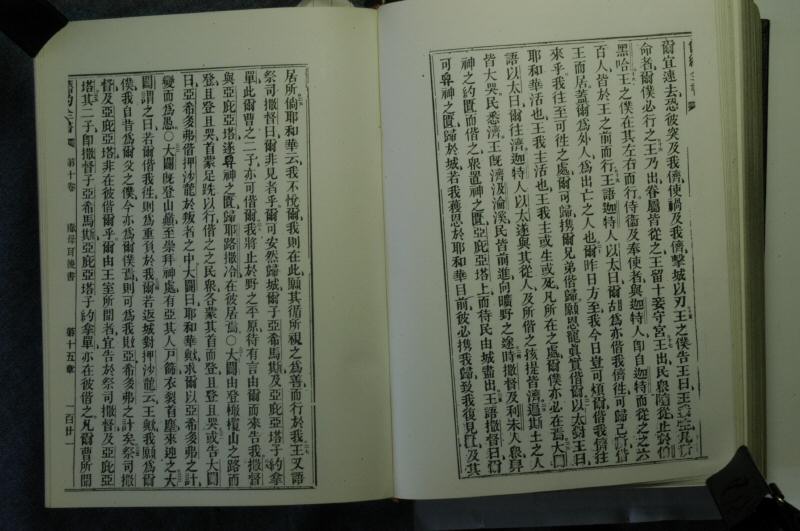 爾宜速去恐彼突及我儕使禍及我儕擊城以刃王之僕告王曰王
命者爾僕必行之王乃出眷屬皆從之王留十妾守宮王出民衆隨從止於
黑哈王之僕在其左右而行侍衞及奉使者與迦特人卽自迦特而從之之六
百人皆於王之前而行王語迦特人以太曰爾胡爲亦偕我儕往可歸
王而居蓋爾爲外人爲出亡之人也爾昨日方至我今日豈可煩爾偕我儕往
來乎我往至可往之處爾可歸携爾兄弟偕歸願恩寵眞實偕爾以太對王曰
耶和華活也王我主活也王我主或生或死凡所在之處爾僕亦必在焉大闢
語以太曰爾往濟迦特人以太遂與其從人及所偕之孩提皆濟過斯土之人
皆大哭民悉濟王旣濟汲淪溪民皆前進向曠野之途時撒督及利未人負舁
神之約匱而偕之衆置神之匱亞庇亞塔上而待民由城盡出王語撒督曰
可舁神之匱歸於城若我獲恩於耶和華目前彼必携我歸致我復見匱及其
居所倘耶和華云我不悅爾我則在此願其循所視之爲善而行於我王又語
祭司撒督曰爾非見者乎爾可安然歸城爾子亞希馬斯及亞庇亞塔子約拿
單此爾曹之二子亦可偕爾我將止於野之平原待有言由爾而來告我撒督
與亞庇亞塔遂舁神之匱歸耶路撒冷在彼居焉○大闢由登橄欖山之路而
登且登且哭首蒙足跣以行偕之之民衆各蒙其首而登且登且哭或告大闢
曰亞希多弗偕押沙龍於叛者之中大闢曰耶和華歟求爾以亞希多弗之計
變而爲愚○大闢旣登山巓至崇拜神處有亞其人戸篩衣裂首塵來迎之大
闢謂之曰若爾偕我往則爲重負於我爾若返城對押沙龍云王歟我願爲爾
僕我自昔爲爾父之僕今亦爲爾僕焉則可爲我敗亞希多弗之計矣祭司撒
督及亞庇亞塔非在彼偕爾乎爾由王室所聞者宜告於祭司撒督及亞庇亞
塔其二子卽撒督子亞希馬斯亞庇亞塔子約拿單亦在彼偕之凡爾曹所聞
舊約全書 第十卷 撒母耳後書 第十五章 一百廿